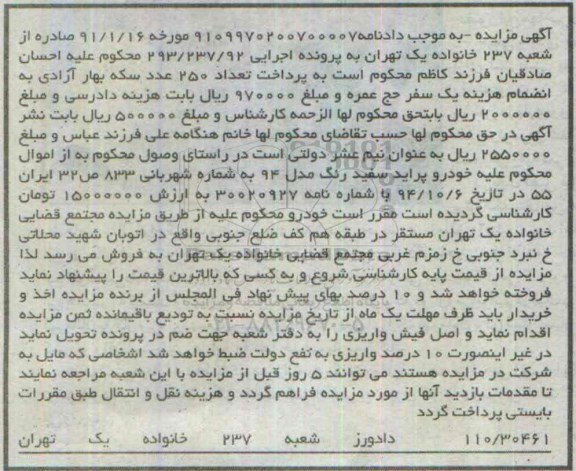 آگهی مزایده -به موجب دادنامه۹۱۰۹۹۷۰۲۰۰۷۰۰۰۰۷ مورخه ۹۱/۱/۱۶ صادره از
شعبه ۲۳۷ خانواده یک تهران به پرونده اجرایی ۲۹۳/۲۳۷/۹۲ محکوم علیه احسان
صادقیان فرزند کاظم محکوم است به پرداخت تعداد ۲۵۰ عدد سکه بهار آزادی به
انضمام هزینه یک سفر حج عمره و مبلغ ۹۷۰۰۰۰ ریال بابت هزینه دادرسی و مبلغ
۲۰۰۰۰۰۰ ریال بابتحق محکوم لها الزحمه کارشناس و مبلغ ۵۰۰۰۰۰ ریال بابت نشر
آگهی در حق محکوم لها حسب تقاضای محکوم لها خانم هنگامه علی فرزند عباس و مبلغ
۲۵۵۰۰۰۰ ریال به عنوان نیم عشر دولتی است در راستای وصول محکوم به از اموال
محکوم علیه خودرو پراید سفید رنگ مدل ۹۴ به شماره شهربانی ۸۳۳ ص۳۲ ایران
۵۵ در تاریخ ۹۴/۱۰/۶ با شماره نامه ۳۰۰۲۰۹۲۷ به ارزش ۱۵۰۰۰۰۰۰ تومان
کارشناسی گردیده است مقرر است خودرو محکوم علیه از طریق مزایده مجتمع قضایی
خانواده یک تهران مستقر در طبقه هم کف ضلع جنوبی واقع در اتوبان شهید محلاتی
خ نبرد جنوبی خ زمزم غربی مجتمع قضایی خانواده یک تهران به فروش می رسد لذا
مزایده از قیمت پایه کارشناسی شروع و به کسی که بالاترین قیمت را پیشنهاد نماید
فروخته خواهد شد و ۱۰ درصد بهای پیش نهاد فی المجلس از برنده مزایده اخذ و
خریدار باید ظرف مهلت یک ماه از تاریخ مزایده نسبت به تودیع باقیمانده ثمن مزایده
اقدام نماید و اصل فیش واریزی را به دفتر شعبه جهت ضم در پرونده تحویل نماید
در غیر اینصورت ۱۰ درصد واریزی به نفع دولت ضبط خواهد شد اشخاصی که مایل به
شرکت در مزایده هستند می توانند ۵ روز قبل از مزایده با این شعبه مراجعه نمایند
تا مقدمات بازدید آنها از مورد مزایده فراهم گردد و هزینه نقل و انتقال طبق مقررات
بایستی پرداخت گردد
۱۱۰/۳۰۴۶۱ دادورز شعبه ۲۳۷ خانواده یک تهران